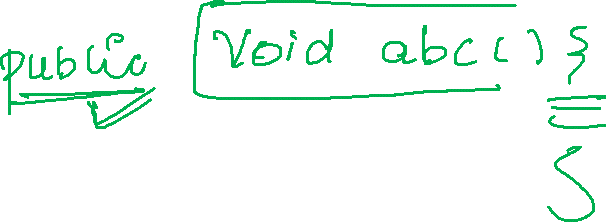 public void abc() {
}